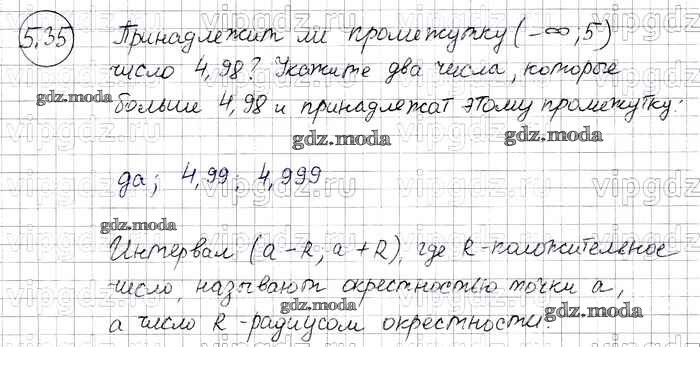 5.35 Принадлежит ли промежутку (-∞, 5)
число 4,98? Укажите два числа, которые
больше 4,98 и принадлежат этому промежутку:
да; 4,99; 4,999
Интервал (a-R, a+R), где R-положительное
число, называют окрестностью точки a,
а число R-радиусом окрестности.
gdz.moda
gdz.moda
gdz.moda
gdz.moda
gdz.moda
gdz.moda